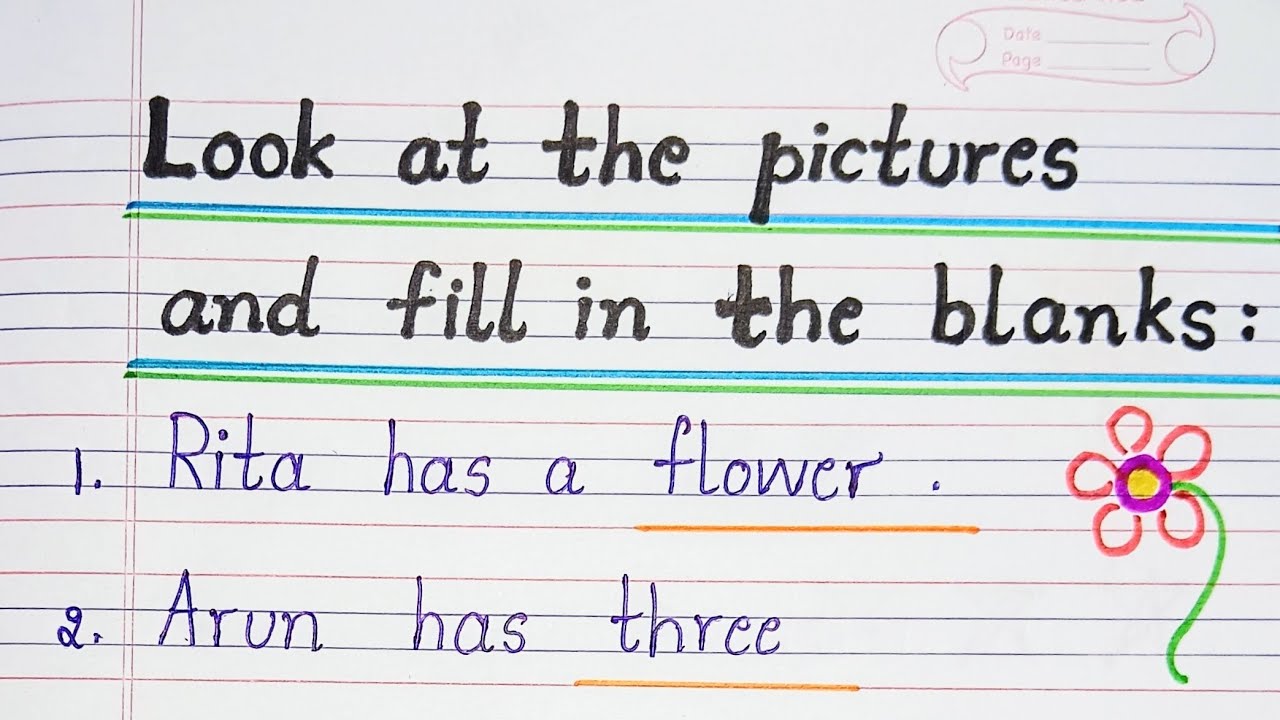 Date
Page
Look at the pictures
and fill in the blanks:
1. Rita has a flower.
2. Arun has three